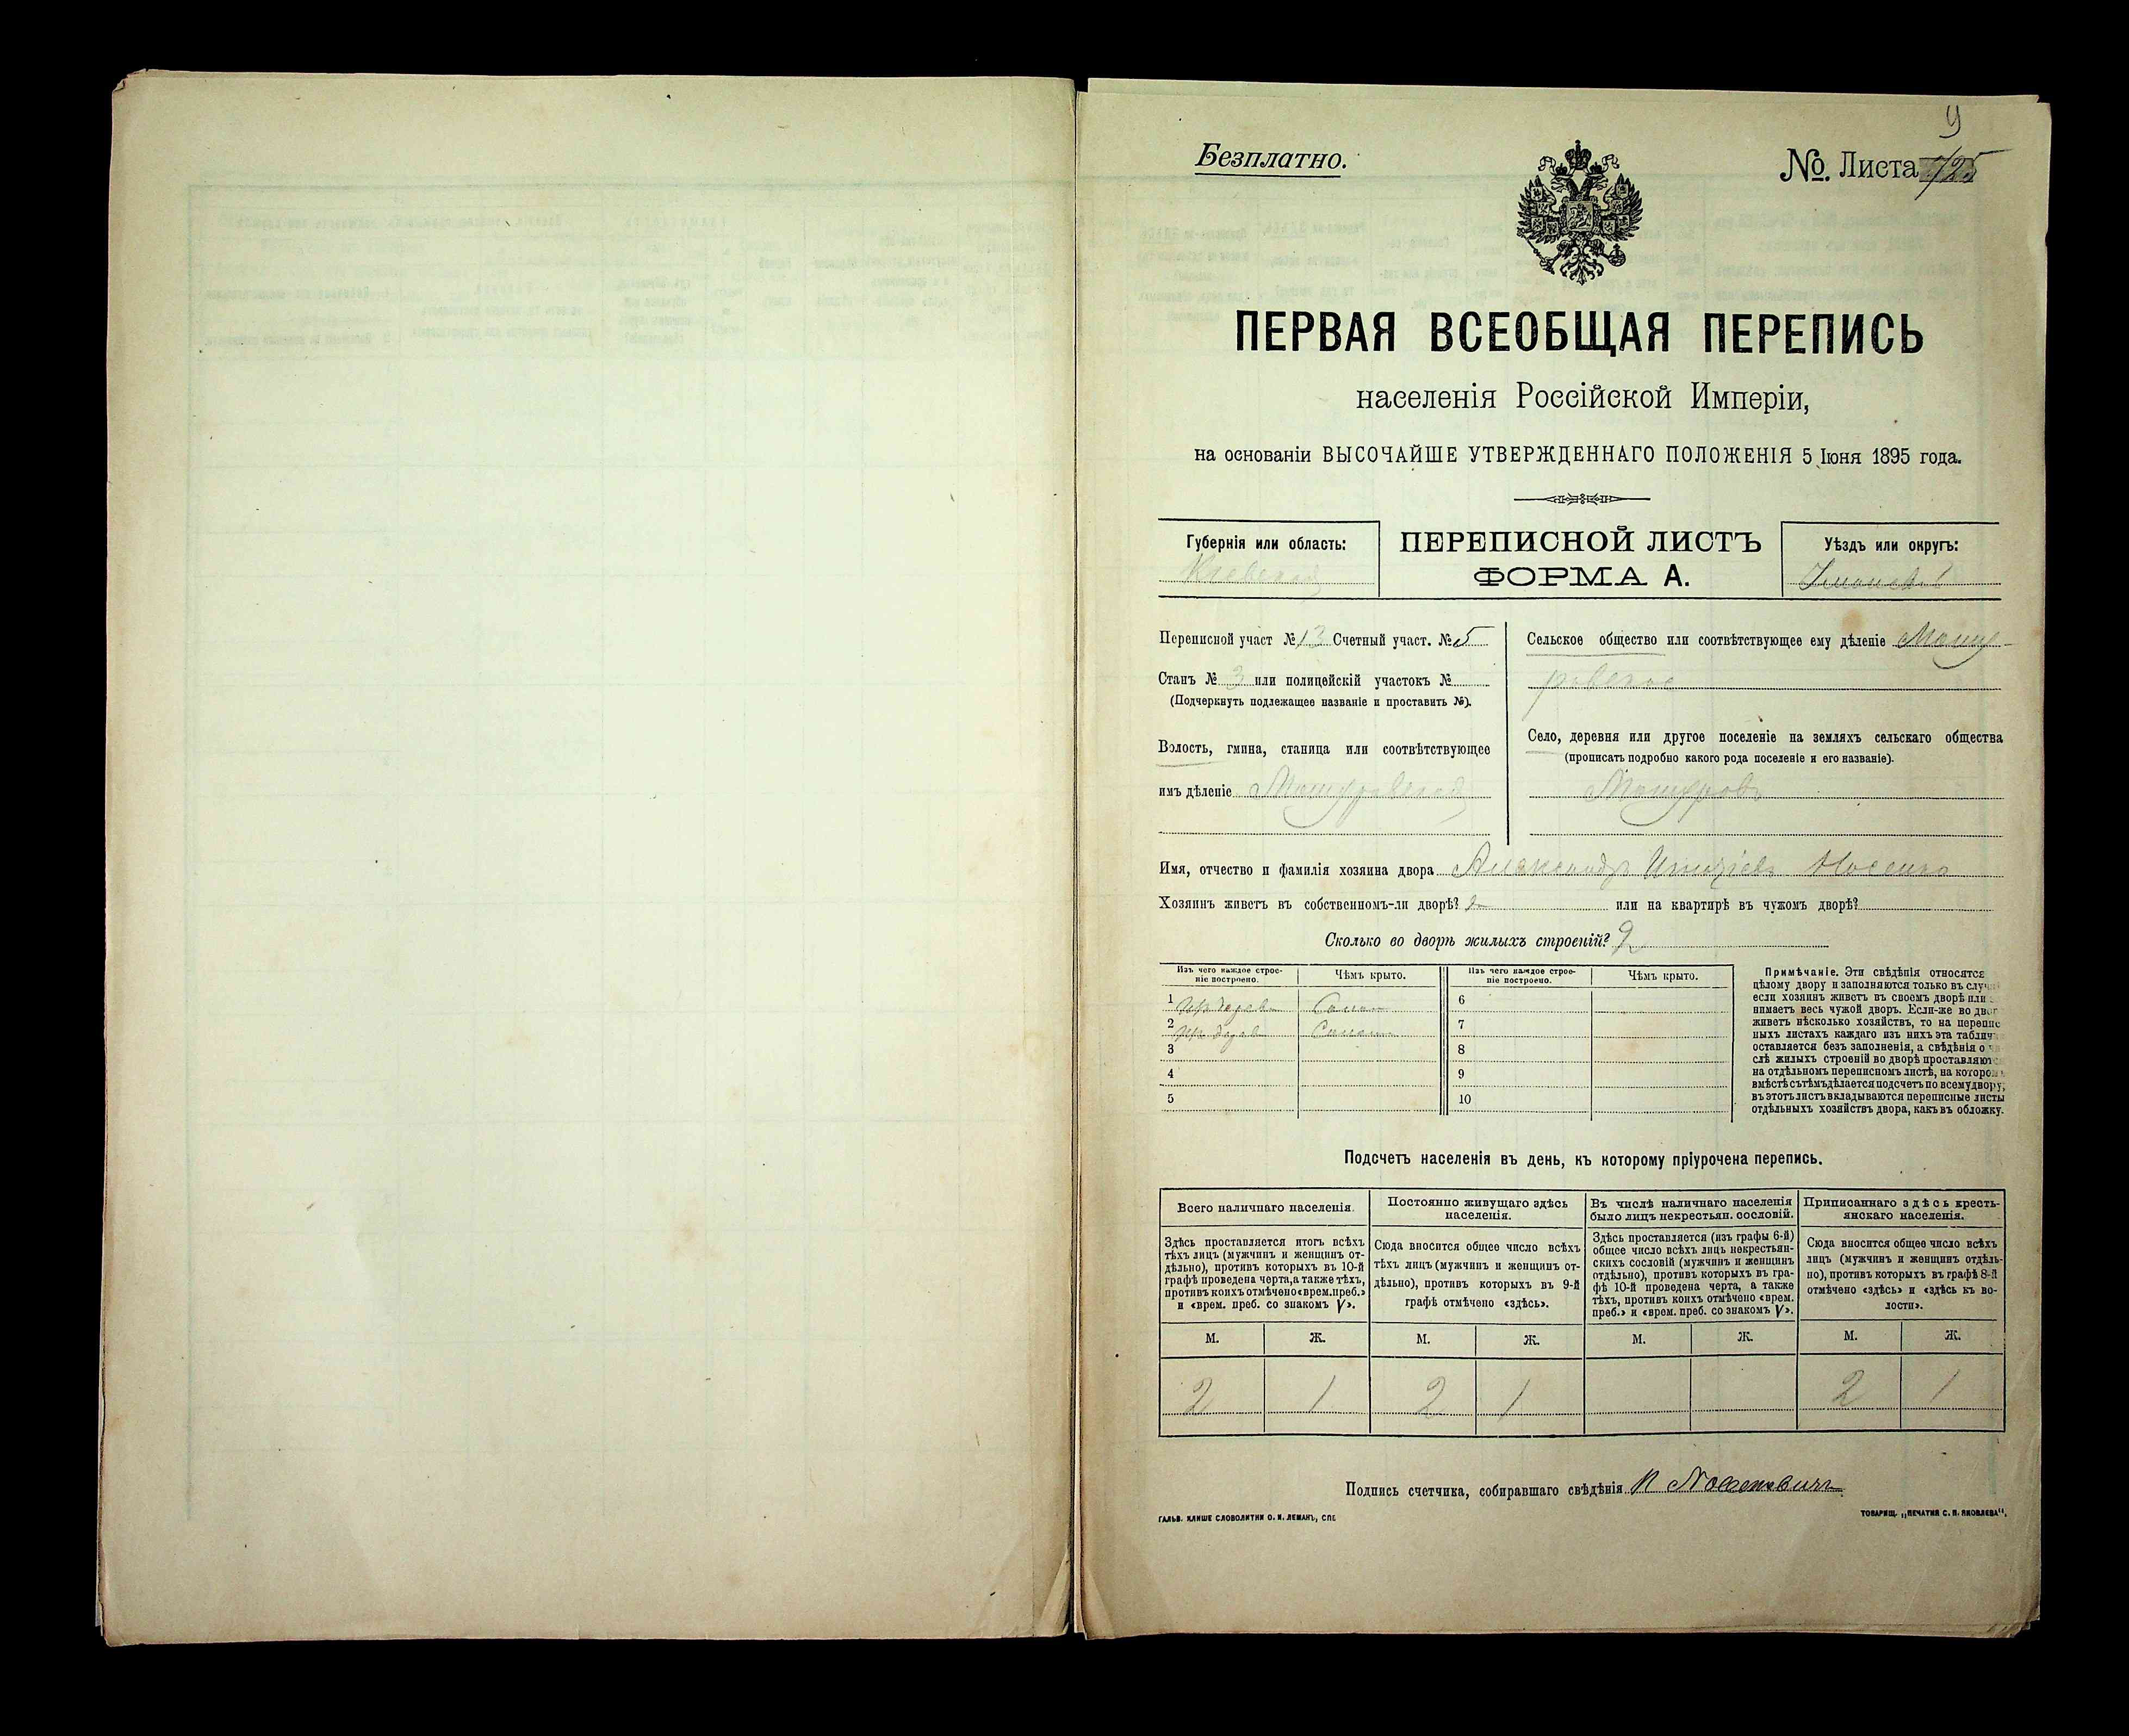 9
Безплатно.
№. Листа 125
ПЕРВАЯ ВСЕОБЩАЯ ПЕРЕПИСЬ
населенія Россійской Имперіи,
на основаніи ВЫСОЧАЙШЕ УТВЕРЖДЕННАГО ПОЛОЖЕНІЯ 5 Іюня 1895 года.
Губернія или область:
Кіевская
ПЕРЕПИСНОЙ ЛИСТЪ
ФОРМА А.
Уѣздъ или округъ:
Переписной участ № 13 Счетный участ. № 5
Станъ № 3 или полицейскій участокъ №
(Подчеркнуть подлежащее названіе и проставить №).
Волость, гмина, станица или соотвѣтствующее
имъ дѣленіе
Сельское общество или соотвѣтствующее ему дѣленіе
Село, деревня или другое поселеніе на земляхъ сельскаго общества
(прописать подробно какого рода поселеніе и его названіе).
Имя, отчество и фамилія хозяина двора Александръ
Хозяинъ живетъ въ собственномъ-ли дворѣ? или на квартирѣ въ чужомъ дворѣ?
Сколько во дворѣ жилыхъ строеній? 2
Изъ чего каждое строе-
ніе построено.
Чѣмъ крыто.
Изъ чего каждое строе-
ніе построено.
Чѣмъ крыто.
1
2
3
4
5
6
7
8
9
10
Примѣчаніе. Эти свѣдѣнія относятся
цѣлому двору и заполняются только въ случ
если хозяинъ живетъ въ своемъ дворѣ или
нимаетъ весь чужой дворъ. Если-же во двор
живетъ нѣсколько хозяйствъ, то на перепис
ныхъ листахъ каждаго изъ нихъ эта таблич
оставляется безъ заполненія, а свѣдѣнія о ч
слѣ жилыхъ строеній во дворѣ проставляютс
на отдѣльномъ переписномъ листѣ, на которо
вмѣстѣ съ тѣмъ дѣлается подсчетъ по всему двору;
въ этотъ листъ вкладываются переписные листы
отдѣльныхъ хозяйствъ двора, какъ въ обложку.
Подсчетъ населенія въ день, къ которому пріурочена перепись.
Всего наличнаго населенія.
Здѣсь проставляется итогъ всѣхъ
тѣхъ лицъ (мужчинъ и женщинъ от-
дѣльно), противъ которыхъ въ 10-й
графѣ проведена черта, а также тѣхъ,
противъ коихъ отмѣчено «врем. преб.»
и «врем. преб. со знакомъ V».
Постоянно живущаго здѣсь
населенія.
Сюда вносится общее число всѣхъ
тѣхъ лицъ (мужчинъ и женщинъ от-
дѣльно), противъ которыхъ въ 9-й
графѣ отмѣчено «здѣсь».
Въ числѣ наличнаго населенія
было лицъ некрестьян. сословій.
Здѣсь проставляется (изъ графы 6-й)
общее число всѣхъ лицъ некрестьян-
скихъ сословій (мужчинъ и женщинъ
отдѣльно), противъ которыхъ въ гра-
фѣ 10-й проведена черта, а также
тѣхъ, противъ коихъ отмѣчено «врем.
преб.» и «врем. преб. со знакомъ V».
Приписаннаго здѣсь кресть-
янскаго населенія.
Сюда вносится общее число всѣхъ
лицъ (мужчинъ и женщинъ отдѣль-
но), противъ которыхъ въ графѣ 8-й
отмѣчено «здѣсь» и «здѣсь къ во-
лости».
М. Ж. М. Ж. М. Ж. М. Ж.
2 1 2 1 2 1
Подпись счетчика, собиравшаго свѣдѣнія
ГАЛЬВ. КЛИШЕ СЛОВОЛИТНИ О. И. ЛЕМАНЪ, СПБ
ТОВАРИЩ. „ПЕЧАТНЯ С. П. ЯКОВЛЕВА“.